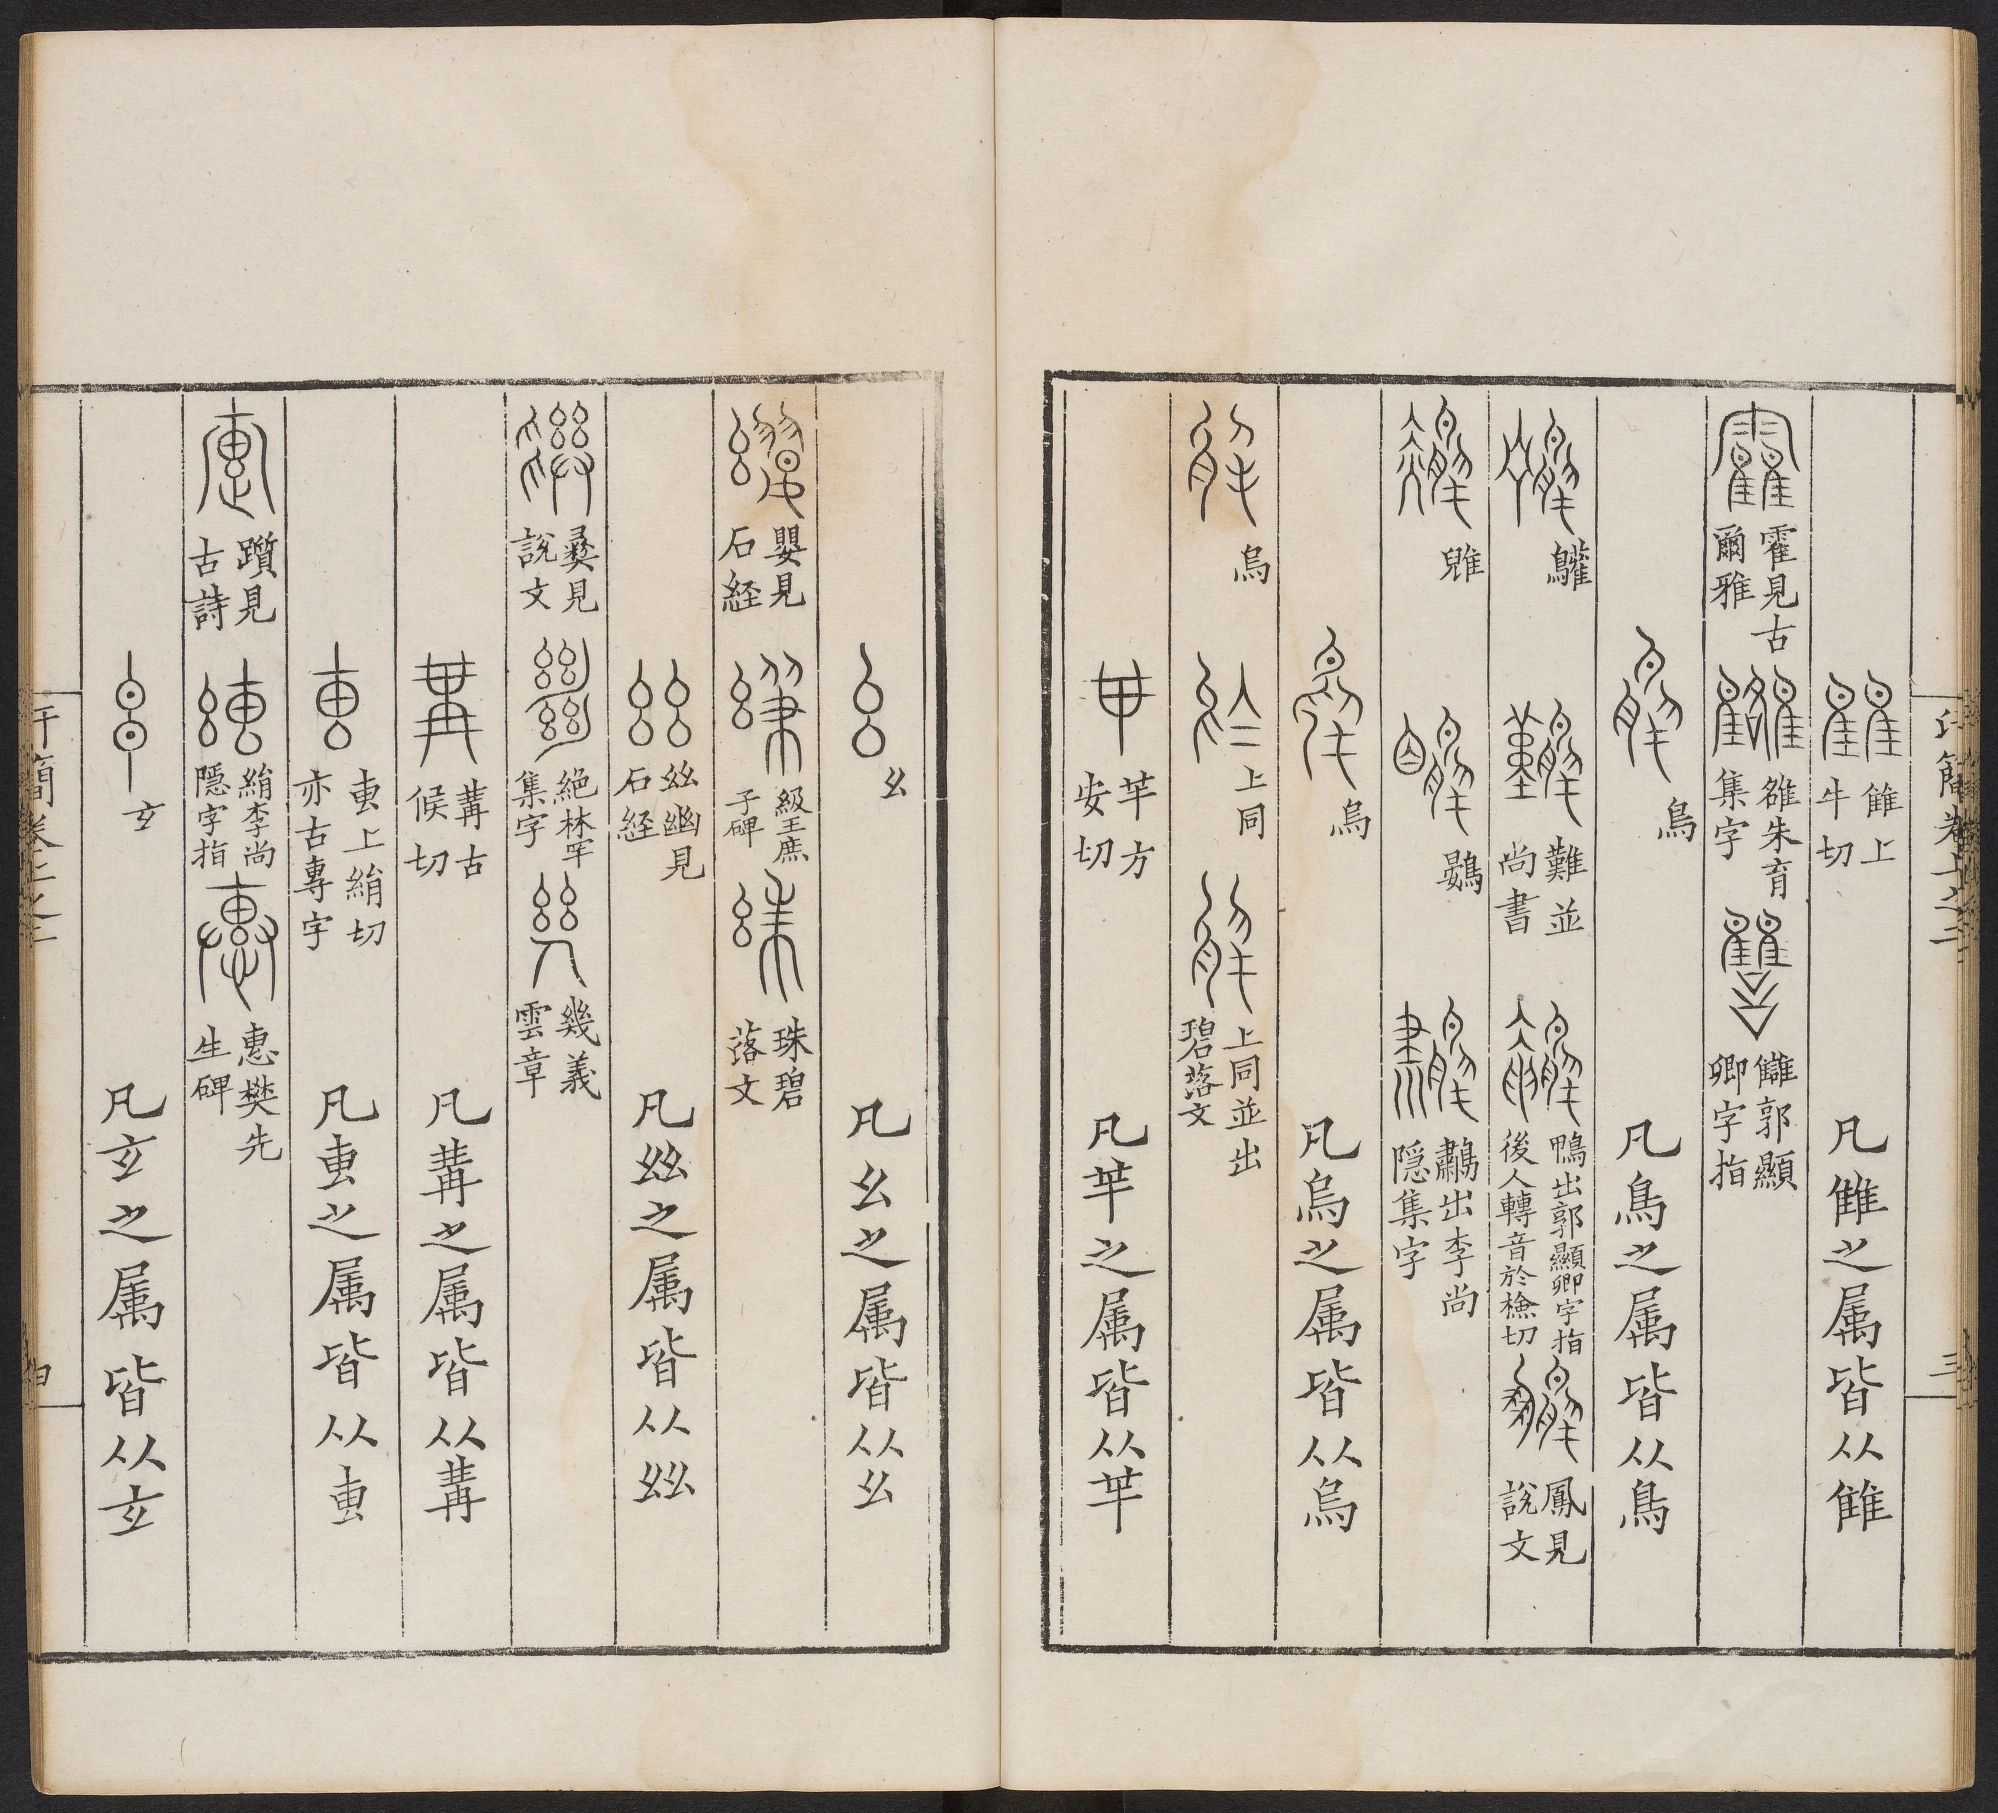 雔上牛切 凡雔之属皆从雔
霍見古爾雅 雒朱育集字 讎郭顯卿字指
鳥 凡鳥之属皆从鳥
鸛 難並尚書 鴨出郭顯卿字指後人轉音於檢切 鳳見說文
雖 鷃 鷫出李尚隱集字
烏 凡烏之属皆从烏
烏 上同 上同並出碧落文
𠦒方安切 凡𠦒之属皆从𠦒
幺 凡幺之属皆从幺
嬰見石経 級王庶子碑 珠碧落文
𢆶幽見石経 凡𢆶之属皆从𢆶
彛見說文 絶林罕集字 幾義雲章
冓古候切 凡冓之属皆从冓
叀上絹切亦古專字 凡叀之属皆从叀
躓見古詩 絹李尚隱字指 惠樊先生碑
玄 凡玄之属皆从玄
汗簡卷上之二
三